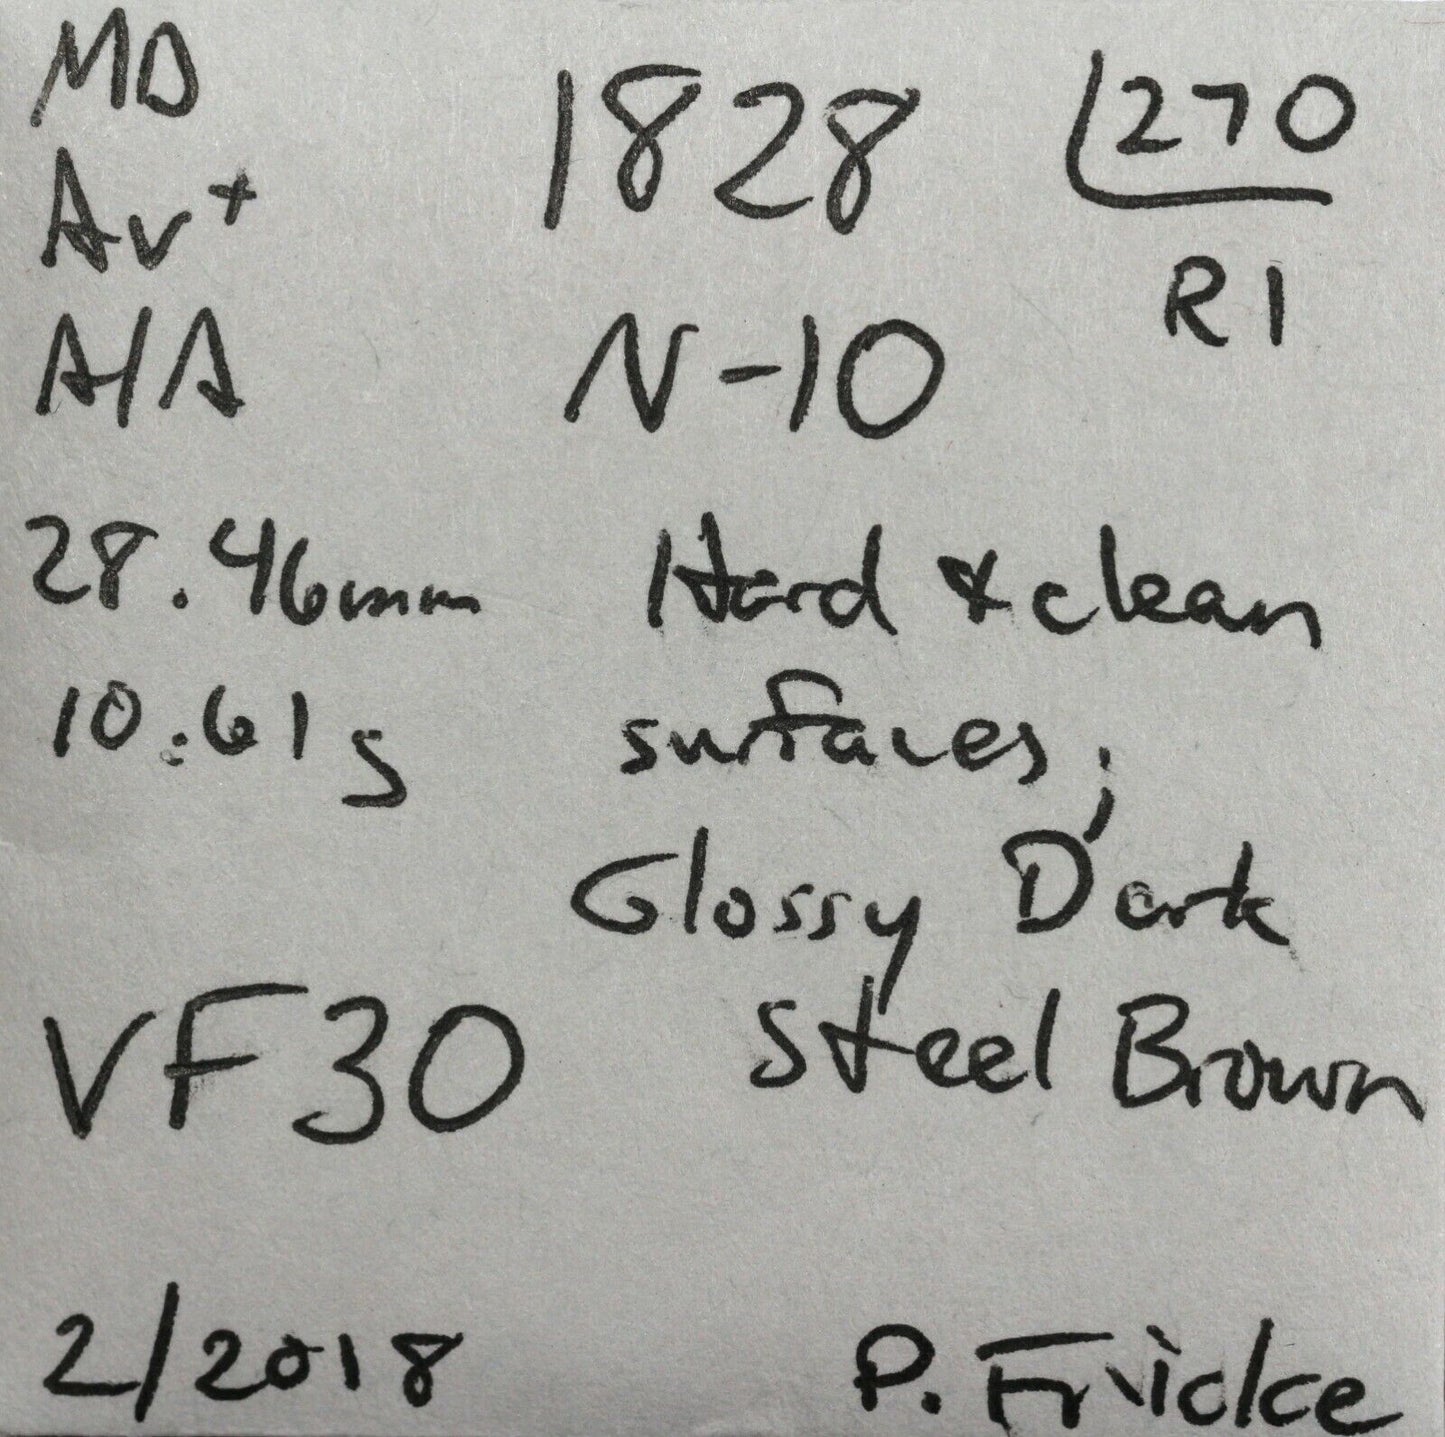 MD 1828 270
Av+ R1
A/A N-10
28.46mm Hard & clean
10.61g surfaces;
Glossy Dark
VF30 Steel Brown
2/2018 P. Fricke